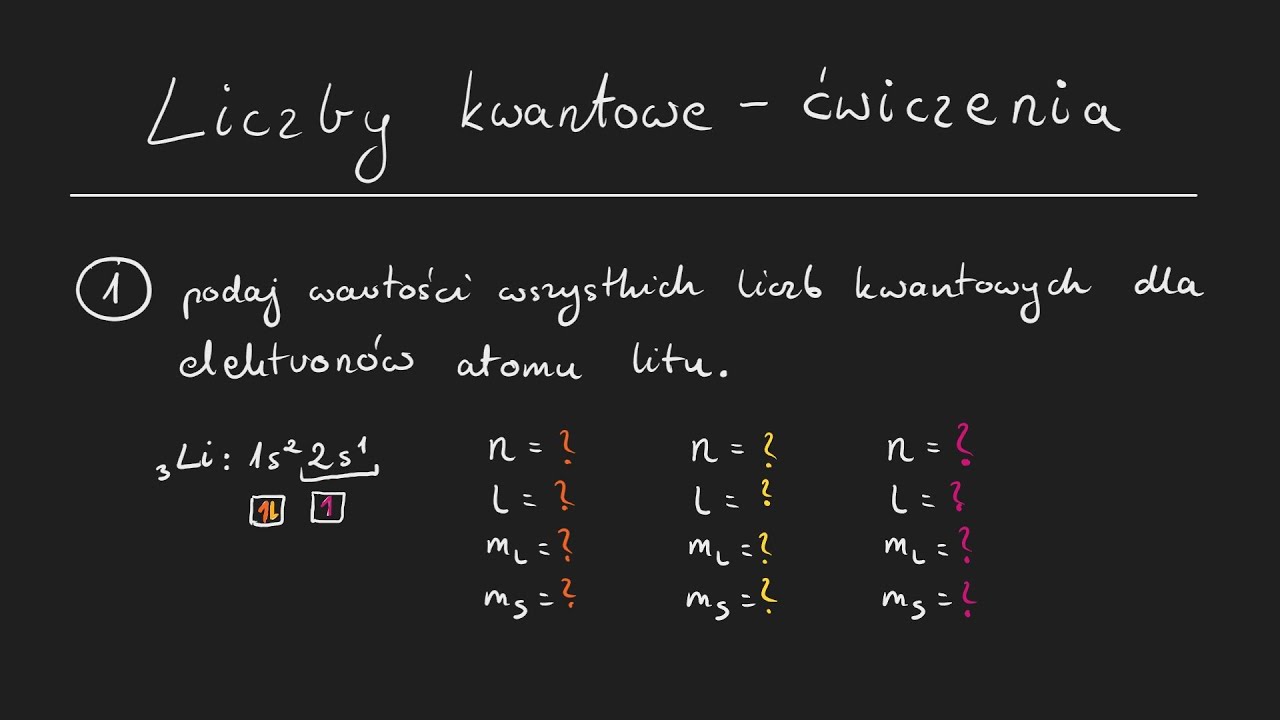 Liczby kwantowe - ćwiczenia
1 podaj wartości wszystkich liczb kwantowych dla
elektronów atomu litu.
₃Li: 1s² 2s¹
1l 1
n = ? n = ? n = ?
l = ? l = ? l = ?
mₗ = ? mₗ = ? mₗ = ?
mₛ = ? mₛ = ? mₛ = ?